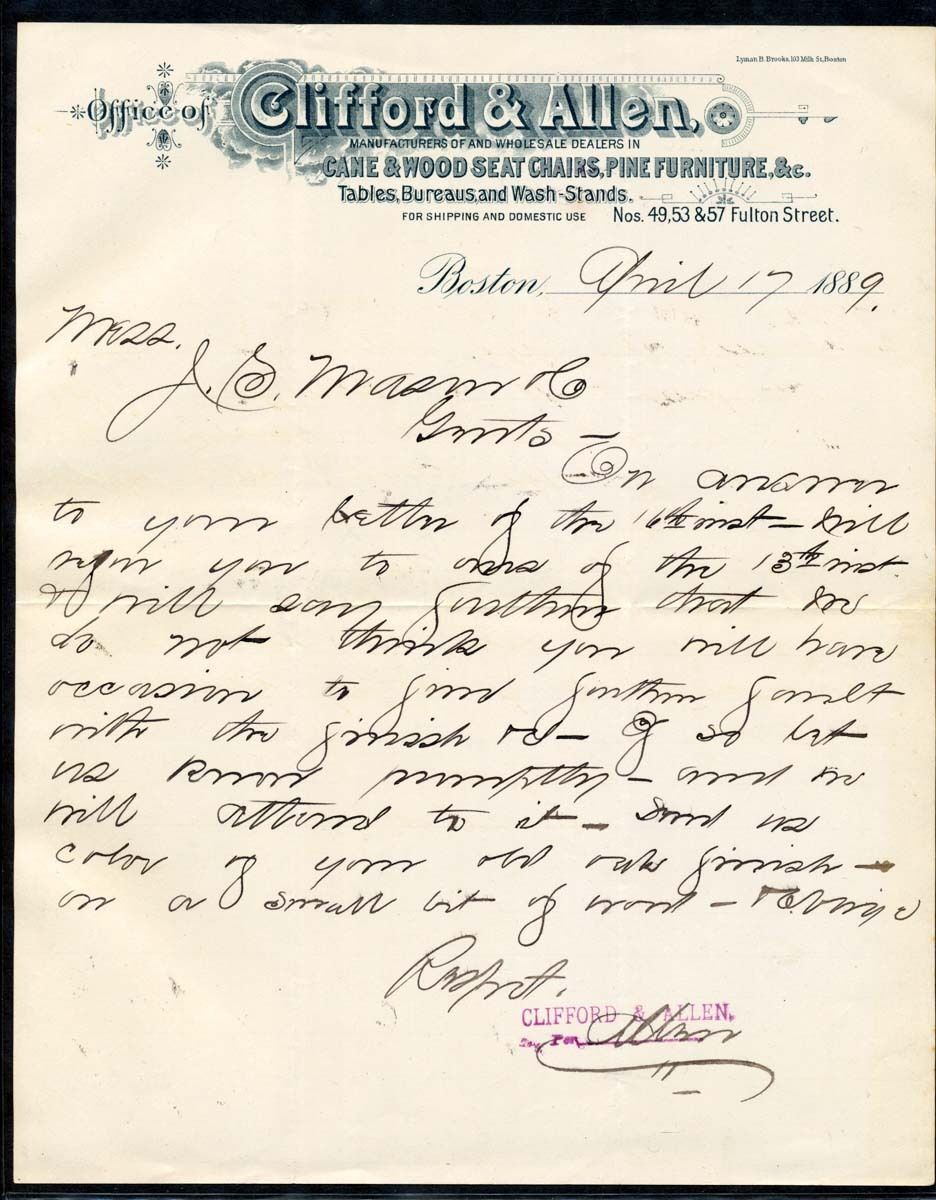 Lyman B. Brooks, 103 Milk St, Boston
Office of Clifford & Allen,
MANUFACTURERS OF AND WHOLESALE DEALERS IN
CANE & WOOD SEAT CHAIRS, PINE FURNITURE, &c.
Tables, Bureaus, and Wash-Stands.
FOR SHIPPING AND DOMESTIC USE Nos. 49, 53 & 57 Fulton Street.
Boston, April 17 1889.
Mess.
J. S. Mason & Co
Gents —
In answer
to your letter of the 16th inst — Will
refer you to ours of the 13th inst.
& will say further that we
do not think you will have
occasion to find further fault
with the finish &c — If so let
us know promptly — and we
will attend to it — Send us
color of your old oak finish —
on a small bit of wood — & oblige
Respct.
CLIFFORD & ALLEN,
Per Allen